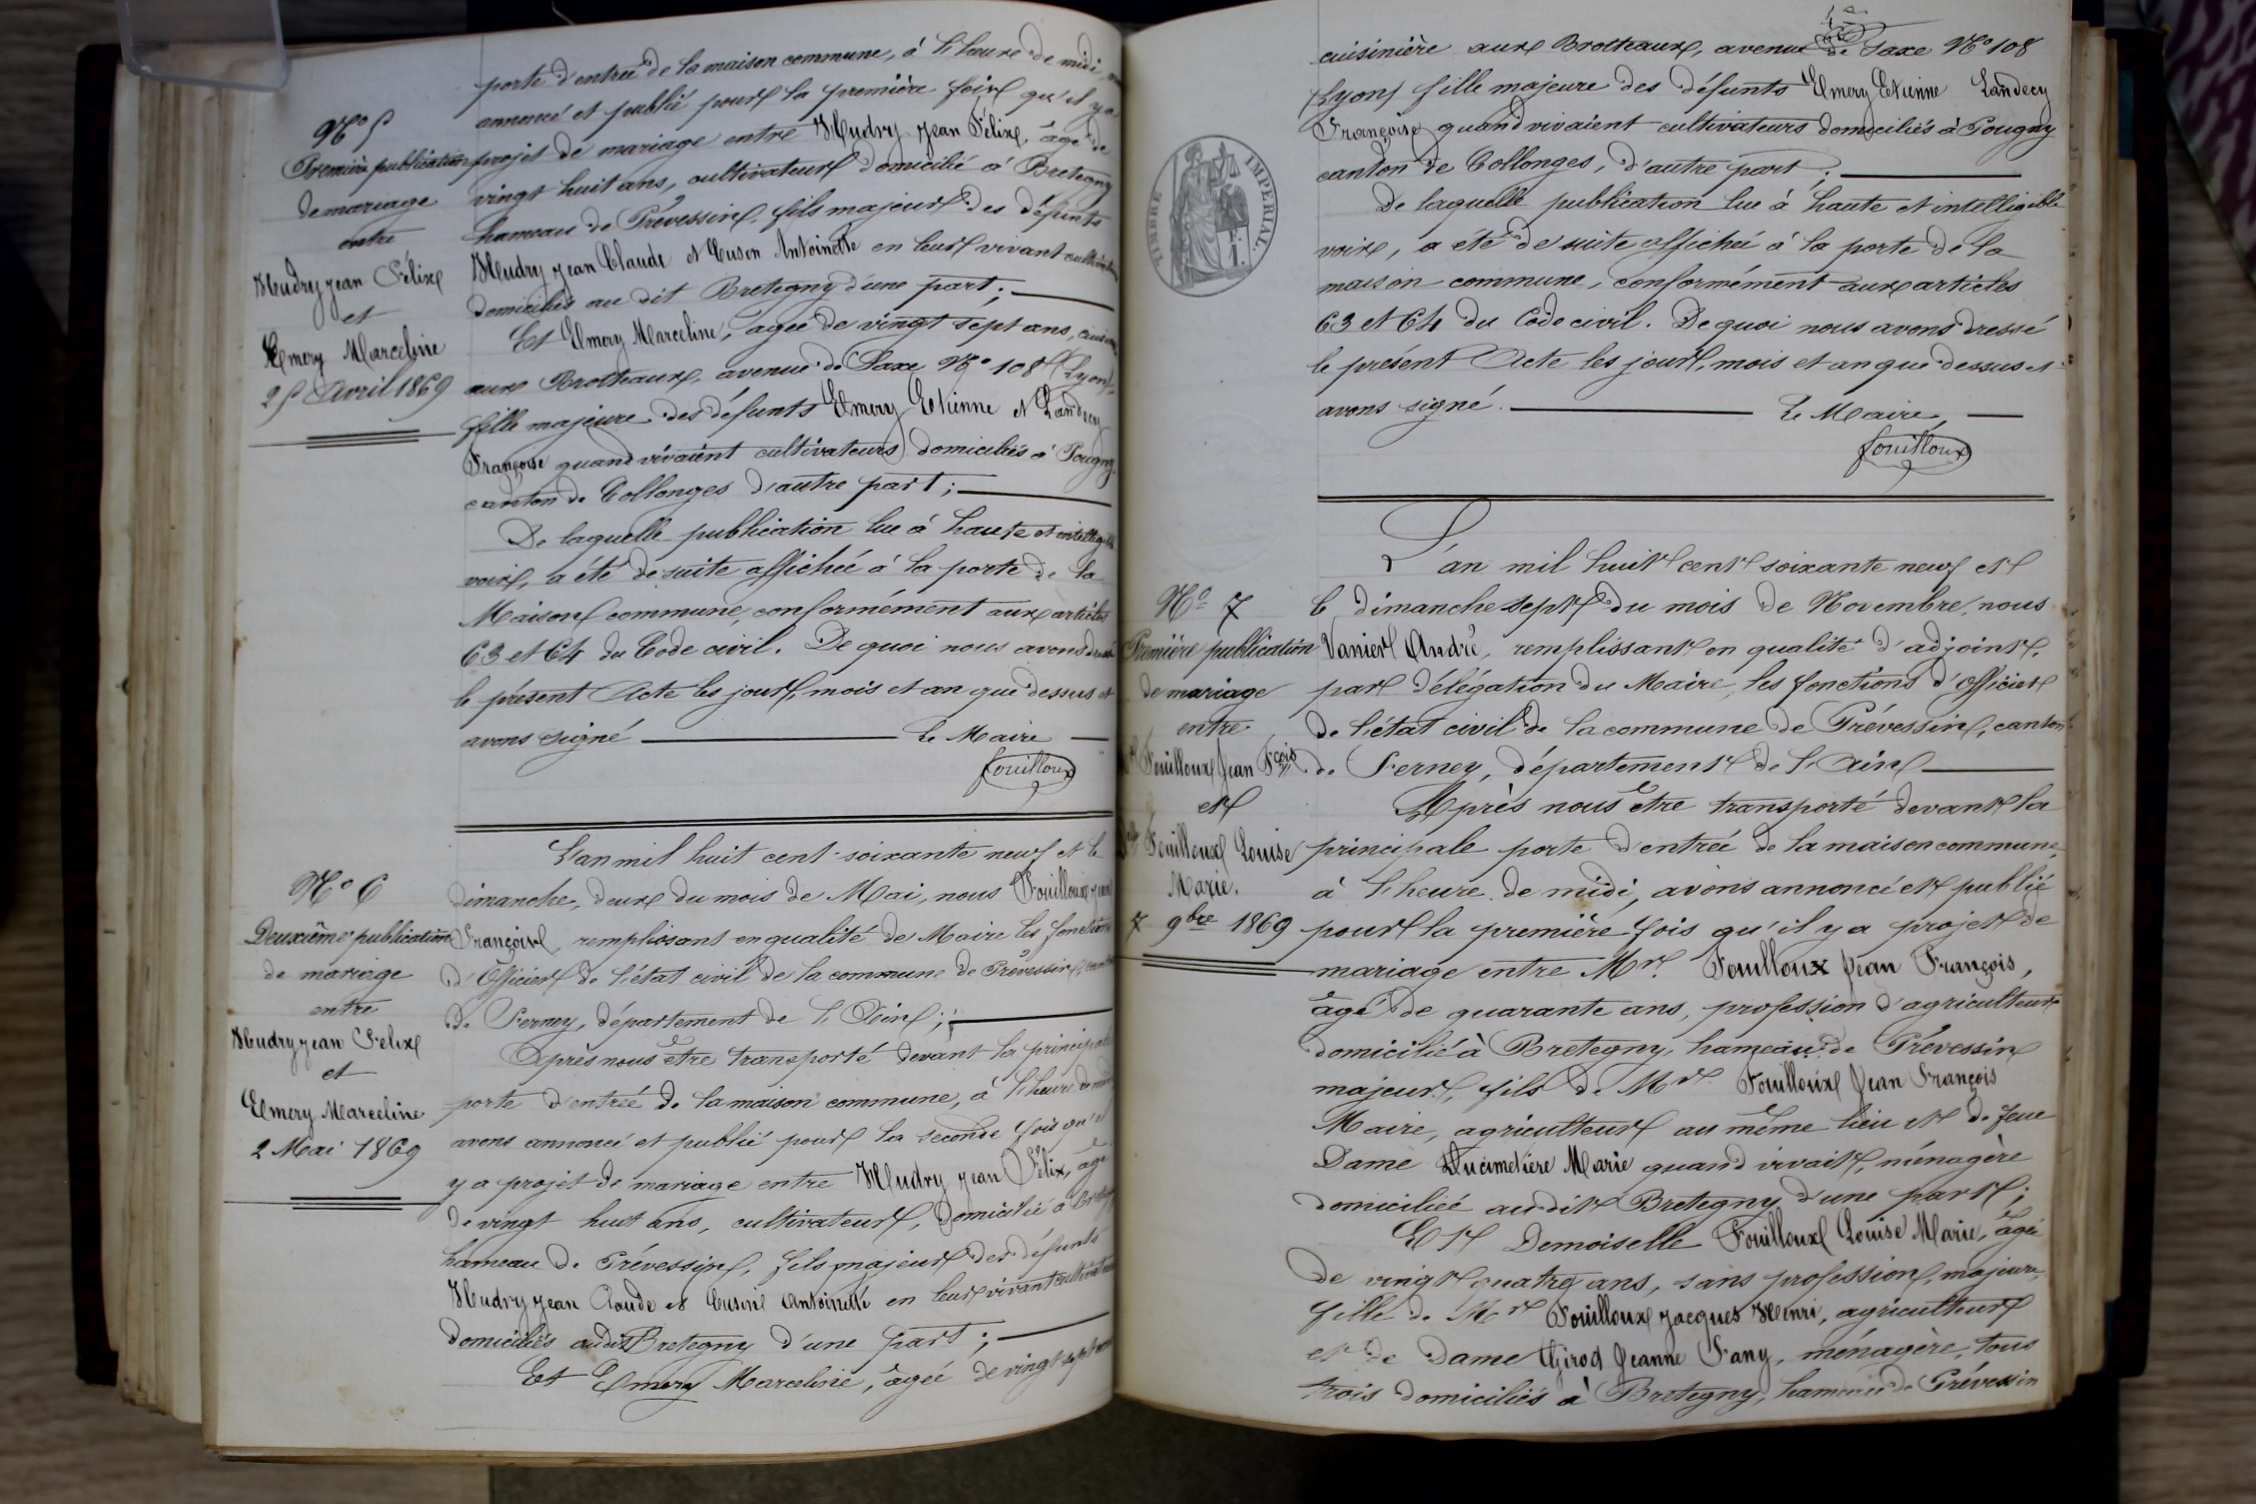 porte d'entrée de la maison commune, à l'heure de midi
annoncé et publié pour la première fois qu'il y a
projet de mariage entre Hudry Jean Félix, âgé de
vingt huit ans, cultivateur domicilié à Bretegny
hameau de Prévessin, fils majeur des défunts
Hudry Jean Claude et Cusin Antoinette en leur vivant
domiciliés au dit Bretegny d'une part;
Et Emery Marceline, âgée de vingt sept ans,
aux Brotteaux, avenue de Saxe No 108 (Lyon)
fille majeure des défunts Emery Etienne et Landecy
Françoise quand vivaient cultivateurs domiciliés à Pougny
canton de Collonges d'autre part;
De laquelle publication lue à haute et
voix, a été de suite affichée à la porte de la
Maison commune, conformément aux articles
63 et 64 du Code civil. De quoi nous avons
le présent Acte les jour, mois et an que dessus et
avons signé Le Maire
fouilloux
No 5
Première publication
de mariage
entre
Hudry Jean Félix
et
Emery Marceline
25 Avril 1869
No 6
Deuxième publication
de mariage
entre
Hudry Jean Felix
et
Emery Marceline
2 Mai 1869
L'an mil huit cent soixante neuf et le
dimanche, deux du mois de Mai, nous Fouilloux Jean
François remplissant en qualité de Maire les fonctions
d'Officier de l'état civil de la commune de Prévessin,
de Ferney, département de l'Ain;
Après nous être transporté devant la principale
porte d'entrée de la maison commune, à l'heure de midi
avons annoncé et publié pour la seconde fois qu'il
y a projet de mariage entre Hudry Jean Félix, âgé
de vingt huit ans, cultivateur, domicilié à
hameau de Prévessin, fils majeur des défunts
Hudry Jean Claude et Cusin Antoinette en leur vivant
domiciliés audit Bretegny d'une part;
Et Emery Marceline, âgée de vingt sept ans
cuisinière aux Brotteaux, avenue de Saxe No 108
(Lyon) fille majeure des défunts Emery Etienne Landecy
Françoise quand vivaient cultivateurs domiciliés à Pougny
canton de Collonges, d'autre part;
De laquelle publication lue à haute et intelligible
voix, a été de suite affichée à la porte de la
maison commune, conformément aux articles
63 et 64 du Code civil. De quoi nous avons dressé
le présent Acte les jour, mois et an que dessus et
avons signé. Le Maire,
fouilloux
TIMBRE IMPERIAL.
No 7
Première publication
de mariage
entre
Fouilloux Jean Fçois
et
Fouilloux Louise
Marie.
7 9bre 1869
L'an mil huit cent soixante neuf et
le dimanche sept du mois de Novembre, nous
Vanier André, remplissant en qualité d'adjoint,
par délégation du Maire, les fonctions d'Officier
de l'état civil de la commune de Prévessin, canton
de Ferney, département de l'Ain
Après nous être transporté devant la
principale porte d'entrée de la maison commune,
à l'heure de midi, avons annoncé et publié
pour la première fois qu'il y a projet de
mariage entre Mr. Fouilloux Jean François,
âgé de quarante ans, profession d'agriculteur
domicilié à Bretegny, hameau de Prévessin
majeur, fils de Mr Fouilloux Jean François
Maire, agriculteur au même lieu et de feue
Dame Ducimetière Marie quand vivait, ménagère
domiciliée audit Bretegny d'une part;
Et Demoiselle Fouilloux Louise Marie, âgée
de vingt quatre ans, sans profession, majeure,
fille de Mr Fouilloux Jacques Henri, agriculteur
et de Dame Girod Jeanne Fany, ménagère, tous
trois domiciliés à Bretegny, hameau de Prévessin